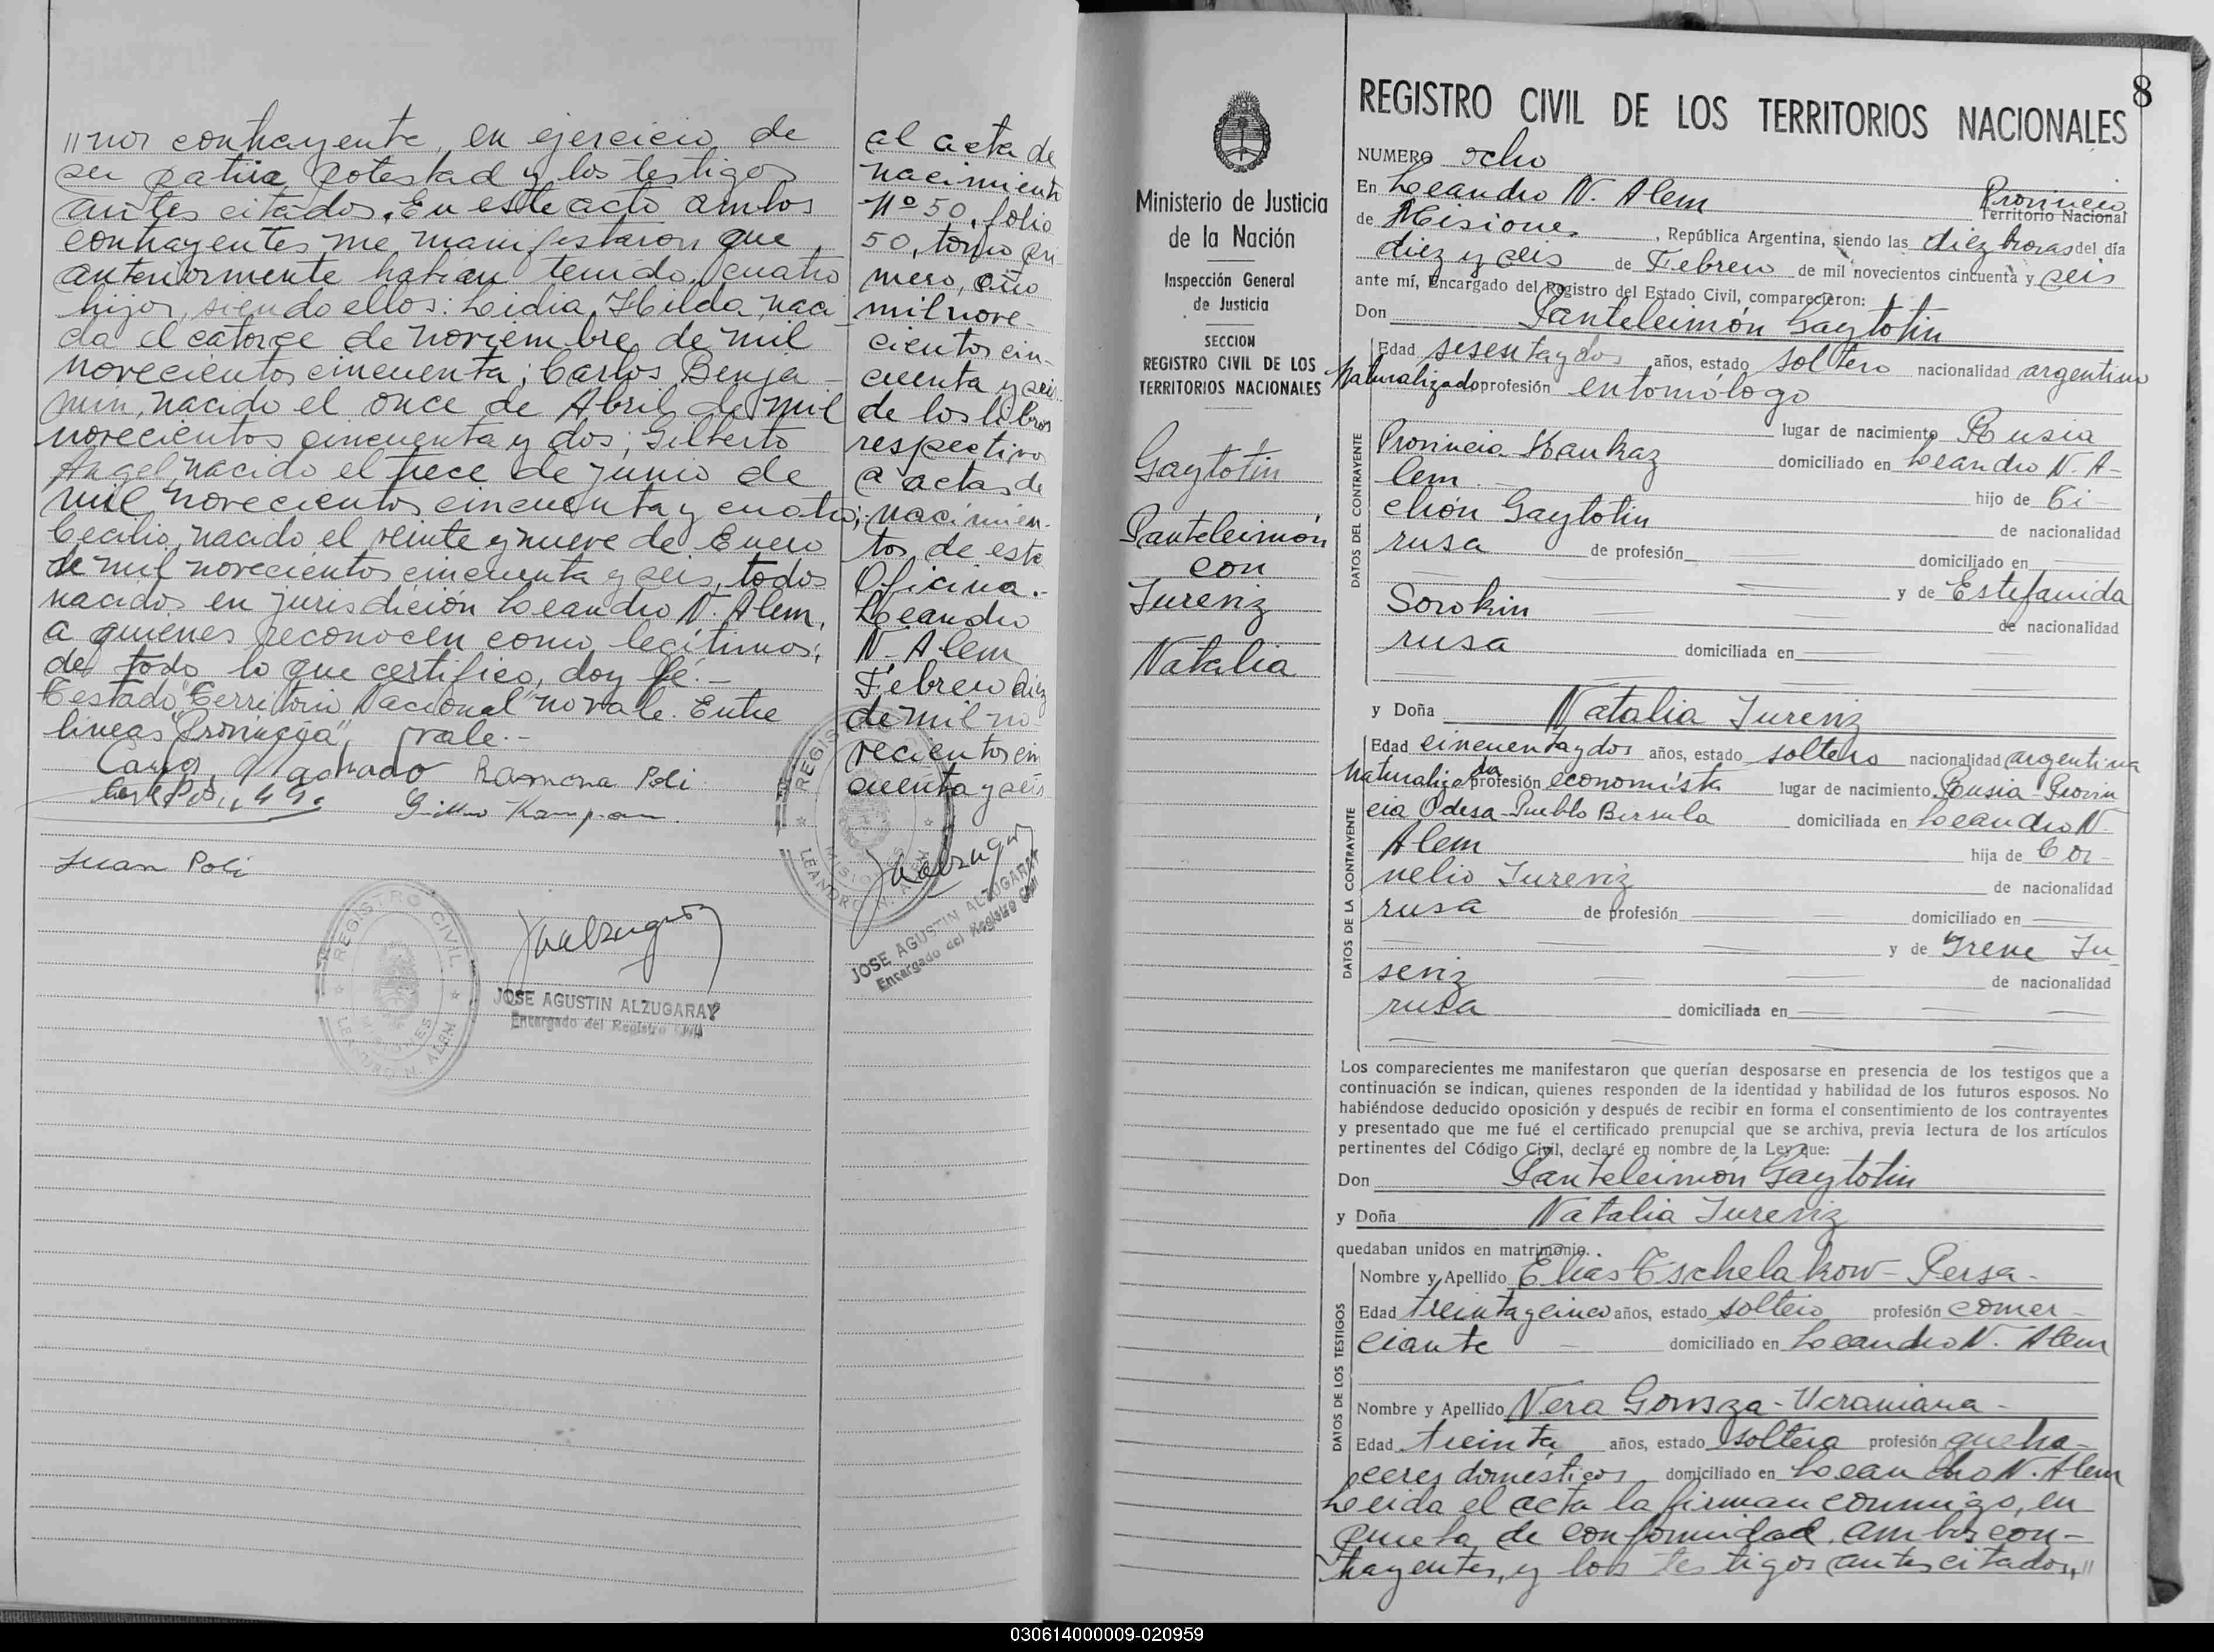 "nor contrayente, en ejercicio de
su patria potestad y los testigos
antes citados. En este acto ambos
contrayentes me manifestaron que
anteriormente habían tenido cuatro
hijos, siendo ellos: Lidia Hilda, naci-
da el catorce de noviembre de mil
novecientos cincuenta; Carlos Benja-
min, nacido el once de Abril de mil
novecientos cincuenta y dos; Gilberto
Angel, nacido el trece de junio de
mil novecientos cincuenta y cuatro;
Cecilio, nacido el veinte y nueve de Enero
de mil novecientos cincuenta y seis, todos
nacidos en jurisdición Leandro N. Alem,
a quienes reconocen como legítimos;
de todo lo que certifico, doy fé.-
Testado "Territorio Nacional" no vale. Entre
lineas "Provincia", vale.-
Ramona Poli
Juan Poli
REGISTRO CIVIL
MISIONES
LEANDRO N. ALEM
JOSE AGUSTIN ALZUGARAY
Encargado del Registro Civil
al acta de
nacimiento
Nº 50, folio
50, tomo pri
mero, año
mil nove-
cientos cin-
cuenta y seis
de los libros
respectivos
a actas de
nacimien-
tos de esta
Oficina.-
Leandro
N. Alem
Febrero diez
de mil no-
vecientos cin
cuenta y seis
REGISTRO CIVIL
MISIONES
LEANDRO N. ALEM
JOSE AGUSTIN ALZUGARAY
Encargado del Registro Civil
8
Ministerio de Justicia
de la Nación
Inspección General
de Justicia
SECCION
REGISTRO CIVIL DE LOS
TERRITORIOS NACIONALES
Gaytotin
Panteleimón
con
Jureviz
Natalia
REGISTRO CIVIL DE LOS TERRITORIOS NACIONALES
NUMERO ocho
En Leandro N. Alem Provincia Territorio Nacional
de Misiones, República Argentina, siendo las diez horas del día
diez y seis de Febrero de mil novecientos cincuenta y seis
ante mí, Encargado del Registro del Estado Civil, comparecieron:
Don Panteleimón Gaytotin
DATOS DEL CONTRAYENTE
Edad sesentaydos años, estado soltero nacionalidad argentino
Naturalizado profesión entomólogo
lugar de nacimiento Rusia
Provincia Kaukaz domiciliado en Leandro N. A-
lem.- hijo de Ti-
chón Gaytotin de nacionalidad
rusa de profesión domiciliado en
y de Estefanida
Sorokin de nacionalidad
rusa domiciliada en
y Doña Natalia Jureviz
DATOS DE LA CONTRAYENTE
Edad cincuentaydos años, estado soltera nacionalidad argentina
naturalizada profesión economista lugar de nacimiento Rusia-Provin
cia Odesa-Pueblo Birsula domiciliada en Leandro N.
Alem hija de Cor-
nelio Jureviz de nacionalidad
rusa de profesión domiciliado en
y de Irene Ju
seviz de nacionalidad
rusa domiciliada en
Los comparecientes me manifestaron que querían desposarse en presencia de los testigos que a
continuación se indican, quienes responden de la identidad y habilidad de los futuros esposos. No
habiéndose deducido oposición y después de recibir en forma el consentimiento de los contrayentes
y presentado que me fué el certificado prenupcial que se archiva, previa lectura de los artículos
pertinentes del Código Civil, declaré en nombre de la Ley que:
Don Panteleimón Gaytotin
y Doña Natalia Jureviz
quedaban unidos en matrimonio.
DATOS DE LOS TESTIGOS
Nombre y Apellido Elías Tschelakow - Persa-
Edad treintaycinco años, estado soltero profesión comer-
ciante domiciliado en Leandro N. Alem
Nombre y Apellido Vera Gonsza - Ucraniana -
Edad treinta años, estado soltera profesión queha-
ceres domésticos domiciliado en Leandro N. Alem
Leida el acta la firman conmigo, en
prueba de conformidad, ambos con-
trayentes, y los testigos antes citados,"
030614000009-020959